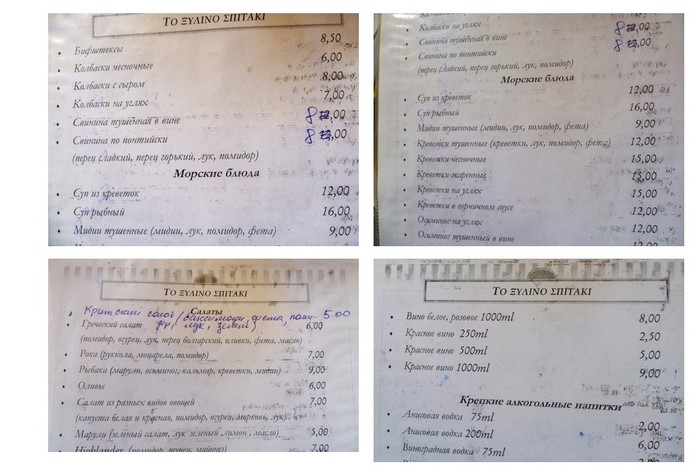 ΤΟ ΞΥΛΙΝΟ ΣΠΙΤΑΚΙ
Бифштексы 8,50
Колбаски чесночные 6,00
Колбаски с сыром 8,00
Колбаски на углях 7,00
Свинина тушённая в вине 8
Свинина по понтийски 8
(перец сладкий, перец горький, лук, помидор)
Морские блюда
Суп из креветок 12,00
Суп рыбный 16,00
Мидии тушенные (мидии, лук, помидор, фета) 9,00
Колбаски на углях
Свинина тушённая в вине 8
Свинина по понтийски 8
(перец сладкий, перец горький, лук, помидор)
Морские блюда
Суп из креветок 12,00
Суп рыбный 16,00
Мидии тушенные (мидии, лук, помидор, фета) 9,00
Креветки тушенные (креветки, лук, помидор, фета) 12,00
Креветки чесночные 15,00
Креветки жаренные 15,00
Креветки на углях 15,00
Креветки в горчичном соусе 12,00
Осьминог на углях 12,00
Осьминог тушенный в вине 12,00
ΤΟ ΞΥΛΙΝΟ ΣΠΙΤΑΚΙ
Салаты
Критский салат фета, 5.00
лук, зелень)
Греческий салат 6,00
(помидор, огурец, лук, перец болгарский, оливки, фета, масло)
Рока (руккола, моцарела, помидор) 7,00
Рыбака (марули, осьминог, кальмар, креветки, мидии) 9,00
Оливье 6,00
Салат из разных видов овощей 7,00
(капуста белая и красная, помидор, огурец, морковь, лук)
Марули (зелёный салат, лук зеленый, лимон, масло) 5,00
Highlander (помидор, тунец, майонез) 7,00
ΤΟ ΞΥΛΙΝΟ ΣΠΙΤΑΚΙ
Вино белое, розовое 1000ml 8,00
Красное вино 250ml 2,50
Красное вино 500ml 5,00
Красное вино 1000ml 9,00
Крепкие алкогольные напитки
Анисовая водка 75ml 2,00
Анисовая водка 200ml 6,00
Виноградная водка 75ml